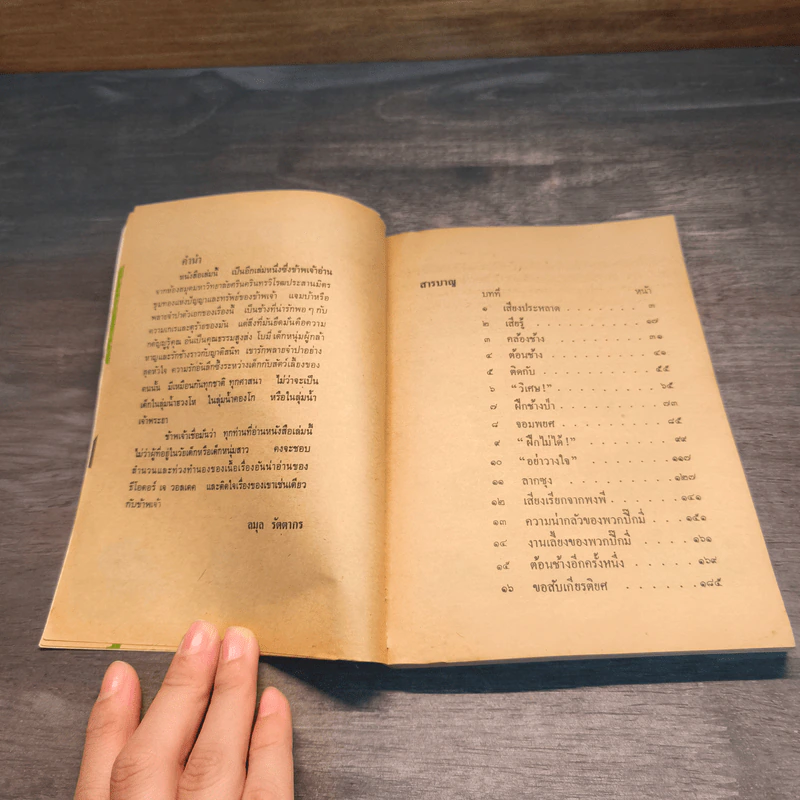 คำนำ
หนังสือเล่มนี้ เป็นอีกเล่มหนึ่งซึ่งข้าพเจ้าอ่าน
จากห้องสมุดมหาวิทยาลัยศรีนครินทรวิโรฒประสานมิตร
ขุมทองแห่งปัญญาและทรัพย์ของข้าพเจ้า แจมบ้าหรือ
พลายจำปาตัวเอกของเรื่องนี้ เป็นช้างที่น่ารักพอ ๆ กับ
ความเกเรและดุร้ายของมัน แต่สิ่งที่มันยึดมั่นคือความ
กตัญญูรู้คุณ อันเป็นคุณธรรมสูงส่ง ไบมี่ เด็กหนุ่มผู้กล้า
หาญและรักช้างราวกับญาติสนิท เขารักพลายจำปาอย่าง
สุดหัวใจ ความรักอันลึกซึ้งระหว่างเด็กกับสัตว์เลี้ยงของ
ตนนั้น มีเหมือนกันทุกชาติ ทุกศาสนา ไม่ว่าจะเป็น
เด็กในลุ่มน้ำฮวงโห ในลุ่มน้ำคองโก หรือในลุ่มน้ำ
เจ้าพระยา
ข้าพเจ้าเชื่อมั่นว่า ทุกท่านที่อ่านหนังสือเล่มนี้
ไม่ว่าผู้ที่อยู่ในวัยเด็กหรือเด็กหนุ่มสาว คงจะชอบ
สำนวนและท่วงทำนองของเนื้อเรื่องอันน่าอ่านของ
ธีโอดอร์ เจ วอลเดค และติดใจเรื่องของเขาเช่นเดียว
กับข้าพเจ้า
ถมุล รัตตากร
สารบาญ
บทที่ หน้า
๑ เสียงประหลาด . . . . . . . . ๓
๒ เสียรู้ . . . . . . . . ๑๗
๓ คล้องช้าง . . . . . . . . ๓๑
๔ ต้อนช้าง . . . . . . . . ๔๑
๕ ติดกับ . . . . . . . . ๕๕
๖ “วิเศษ!” . . . . . . . . ๖๕
๗ ฝึกช้างป่า . . . . . . . . ๗๓
๘ จอมพยศ . . . . . . . . ๘๕
๙ “ฝึกไม่ได้!” . . . . . . . . ๙๙
๑๐ “อย่าวางใจ” . . . . . . . . ๑๑๗
๑๑ ลากซุง . . . . . . . . ๑๒๗
๑๒ เสียงเรียกจากพงพี . . . . . ๑๔๑
๑๓ ความน่ากลัวของพวกปิ๊กมี่ . . . ๑๕๑
๑๔ งานเลี้ยงของพวกปิ๊กมี่ . . . . . ๑๖๑
๑๕ ต้อนช้างอีกครั้งหนึ่ง . . . . . . ๑๖๙
๑๖ ขอสับเกียรติยศ . . . . . . ๑๘๕